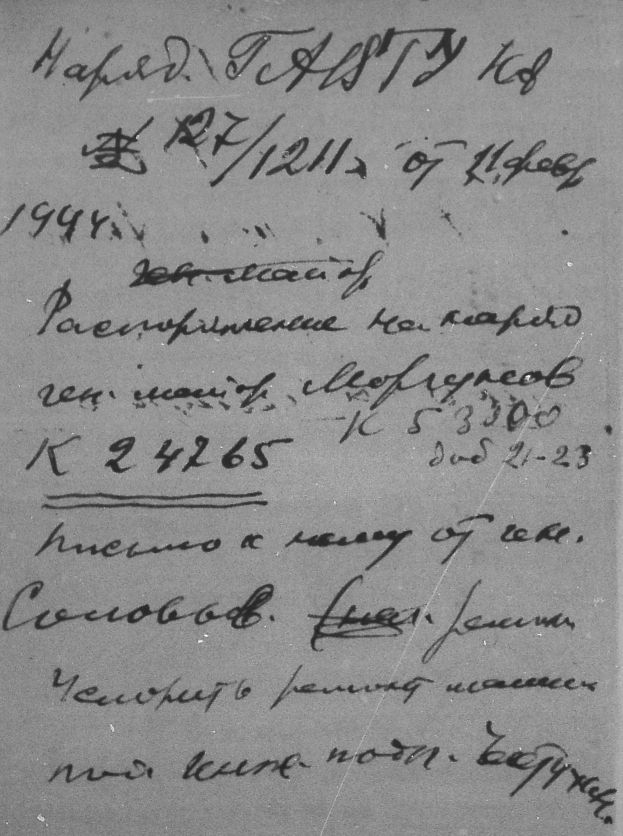 Наряд. ГАБТУ КА
№ 127/1211 от 11 февр
1944.
ген. майор
Распоряжение на наряд
ген. майор Моргунов
К 53300
К 24765
доб 21-23
письмо к нему от ген.
Соловьев. ремонт
Ускорить ремонт машин
инж. подп.